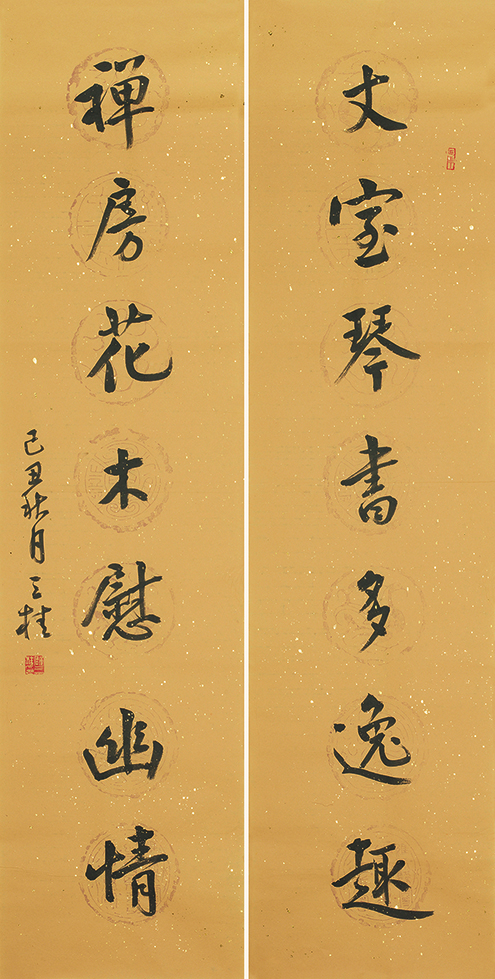 丈室琴書多逸趣
禅房花木慰幽情
己丑秋月三桂